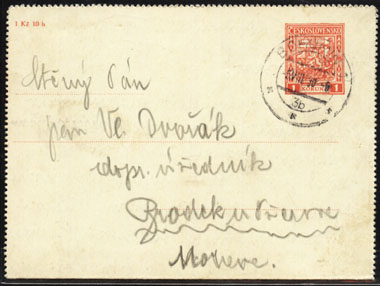 1 Kč 10 h
ČESKOSLOVENSKO
1 KORUNA 1
3b
Ctěný Pán
pan Vl. Dvořák
dopr. úředník
Brodek u Přerova
Morava.